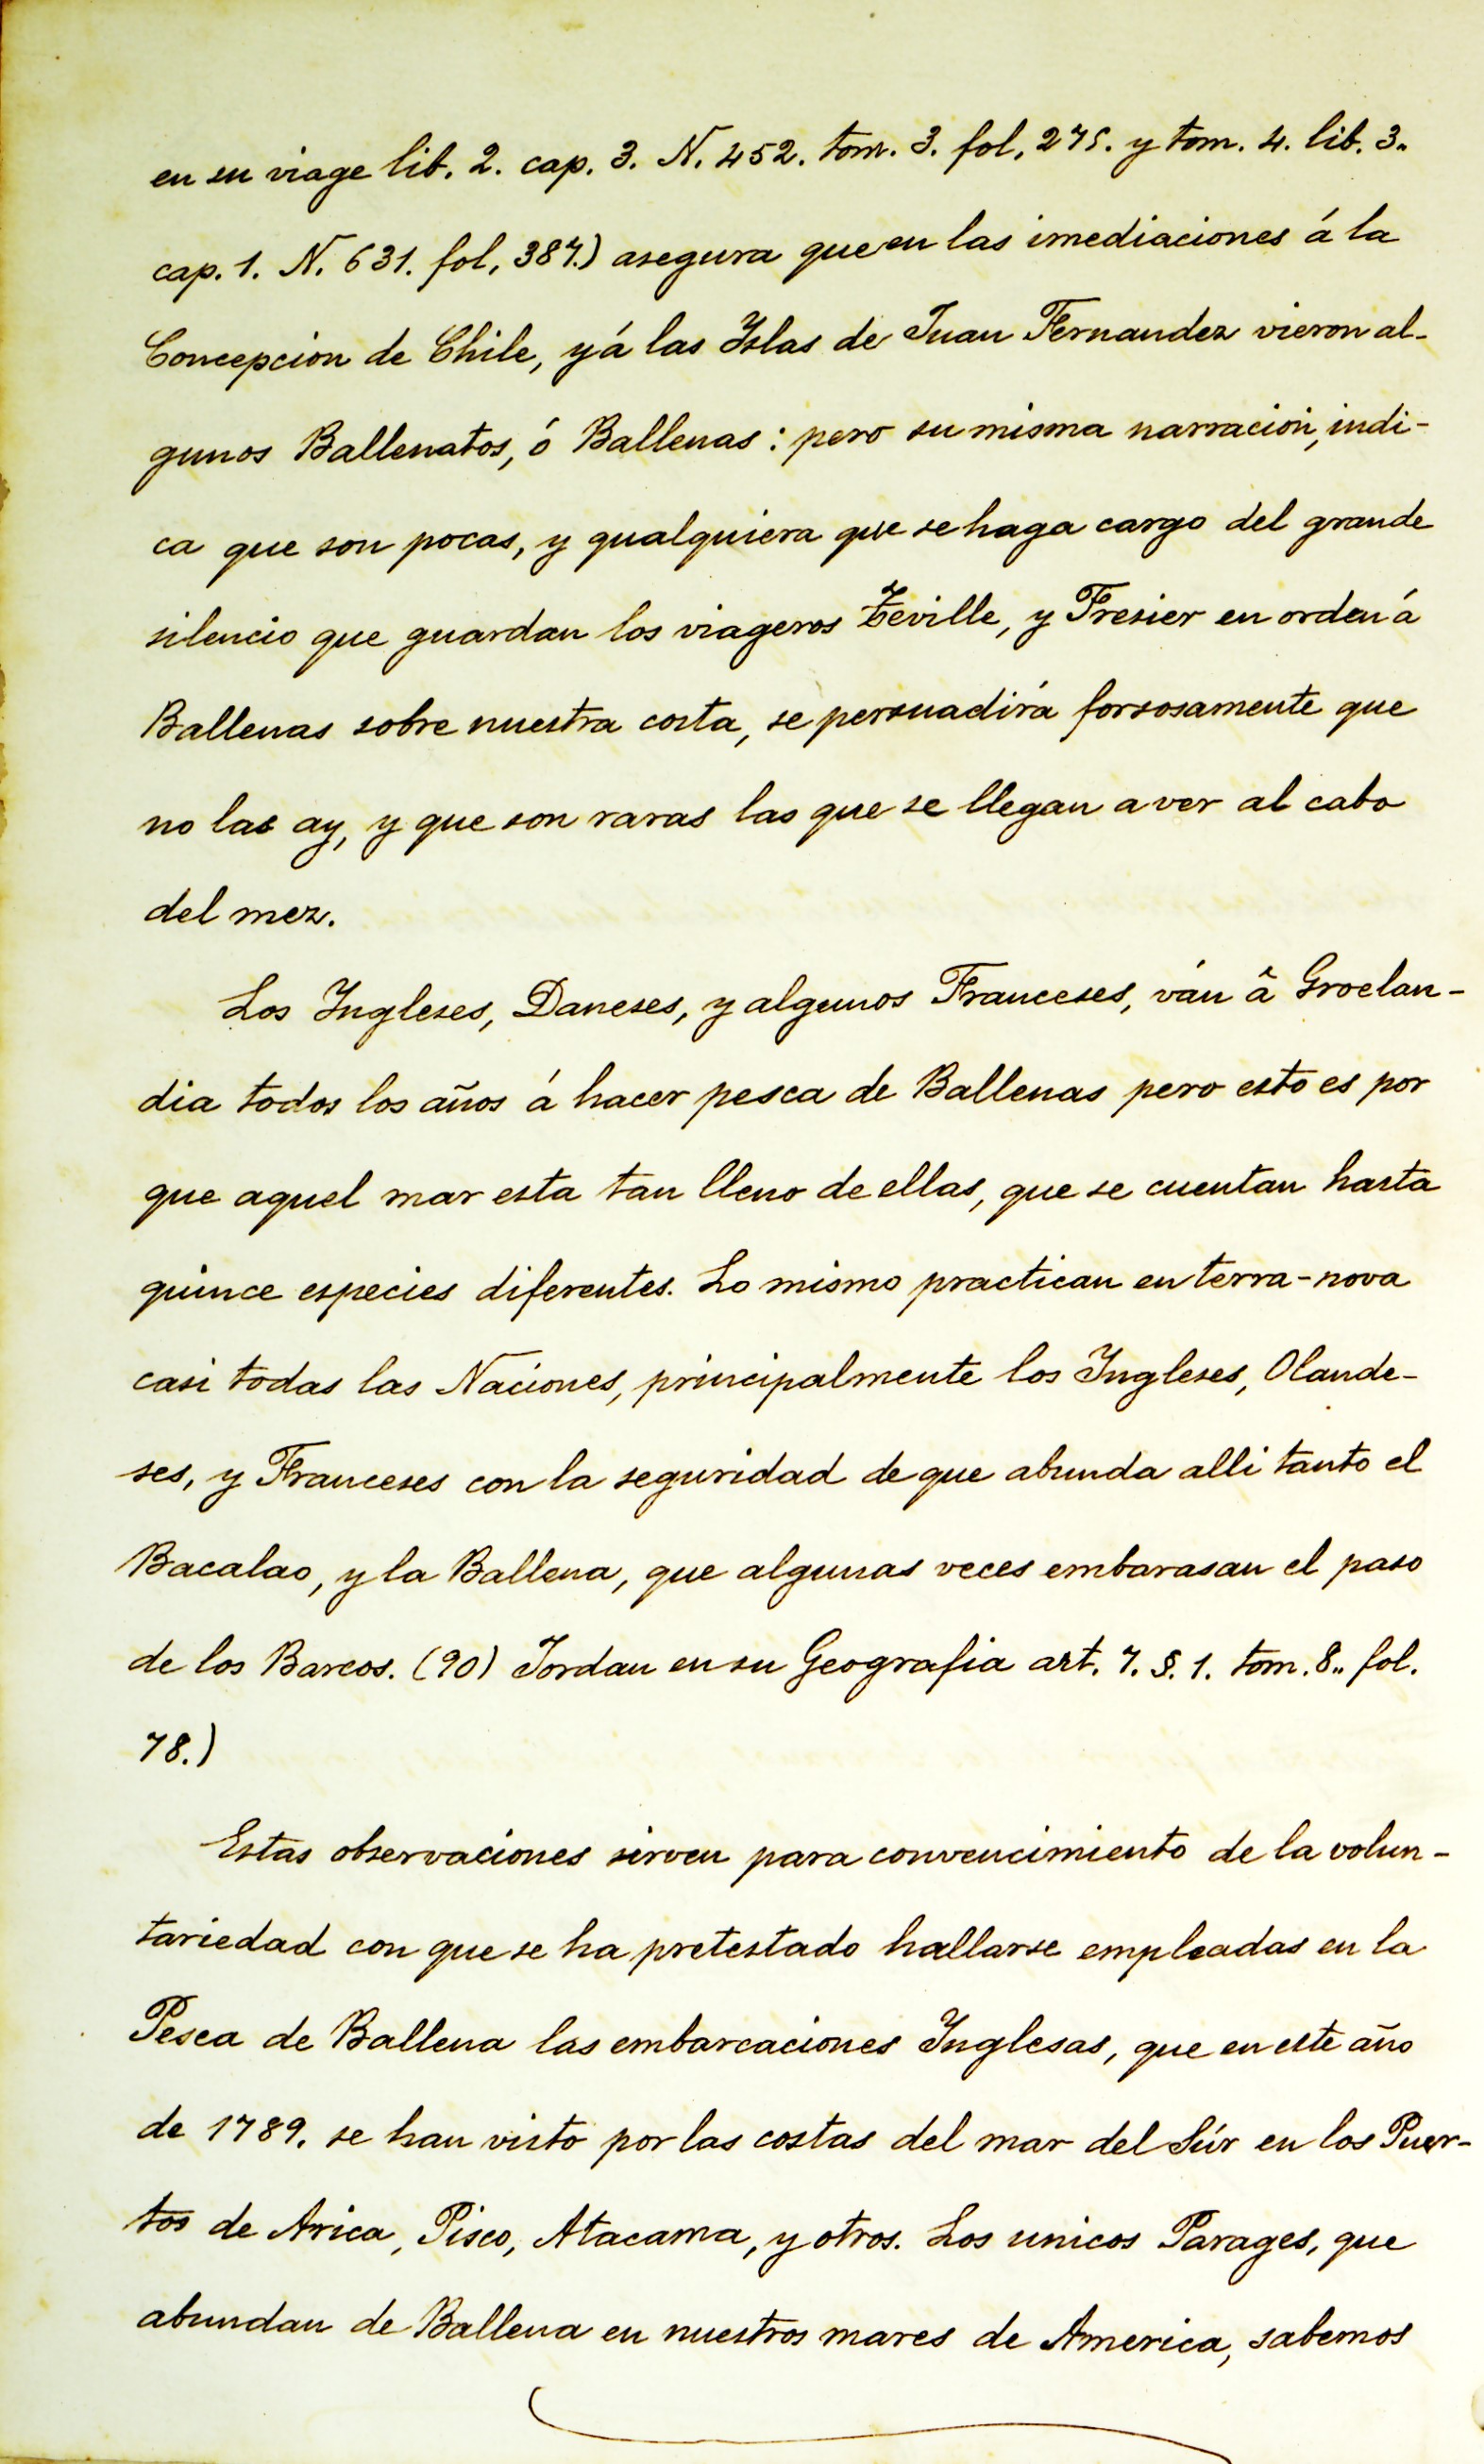 en su viage lib. 2. cap. 3. N. 452. tom. 3. fol, 275. y tom. 4. lib. 3.
cap. 1. N. 631. fol, 387.) asegura que en las imediaciones á la
Concepcion de Chile, y á las Yslas de Juan Fernandez vieron al-
gunos Ballenatos, ó Ballenas: pero su misma narración, indi-
ca que son pocas, y qualquiera que se haga cargo del grande
silencio que guardan los viageros Zeville, y Fresier en orden á
Ballenas sobre nuestra costa, se persuadirá forsosamente que
no las ay, y que son raras las que se llegan a ver al cabo
del mez.
Los Yngleses, Daneses, y algunos Franceses, ván â Groelan-
dia todos los años á hacer pesca de Ballenas pero esto es por
que aquel mar esta tan lleno de ellas, que se cuentan hasta
quince especies diferentes. Lo mismo practican en terra-nova
casi todas las Naciones, principalmente los Yngleses, Olande-
ses, y Franceses con la seguridad de que abunda alli tanto el
Bacalao, y la Ballena, que algunas veces embarasan el paso
de los Barcos. (90) Jordan en su Geografia art. 7. §. 1. tom. 8.. fol.
78.)
Estas observaciones sirven para convencimiento de la volun-
tariedad con que se ha pretestado hallarse empleadas en la
Pesca de Ballena las embarcaciones Ynglesas, que en este año
de 1789. se han visto por las costas del mar del Súr en los Puer-
tos de Arica, Pisco, Atacama, y otros. Los unicos Parages, que
abundan de Ballena en nuestros mares de America, sabemos